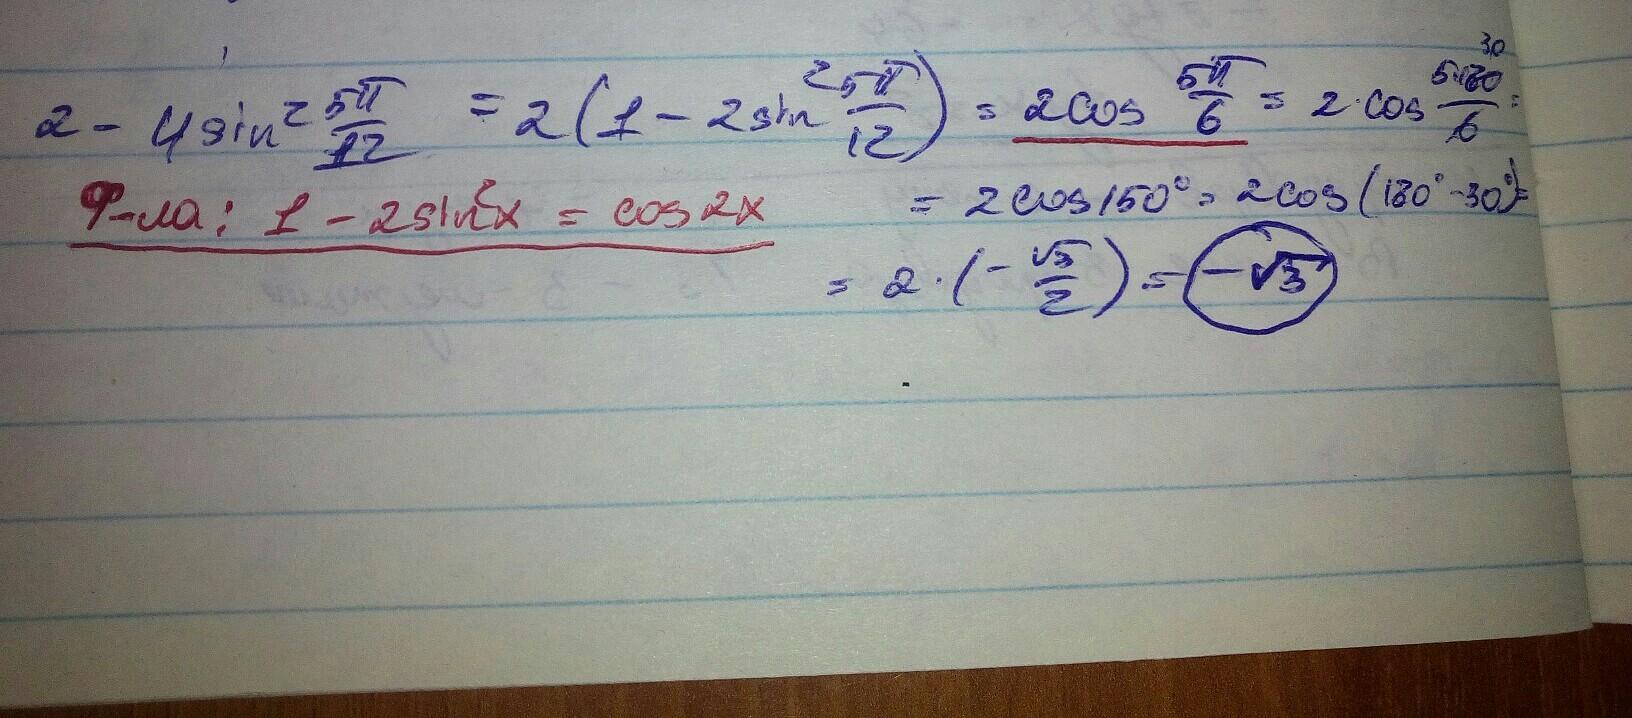 2 - 4sin² 5π/12 = 2(1 - 2sin² 5π/12) = 2cos 5π/6 = 2·cos 5·180/6 =
30
Ф-ла: 1 - 2sin²x = cos2x
= 2cos150° = 2cos(180° - 30°) =
= 2·(-√3/2) = -√3